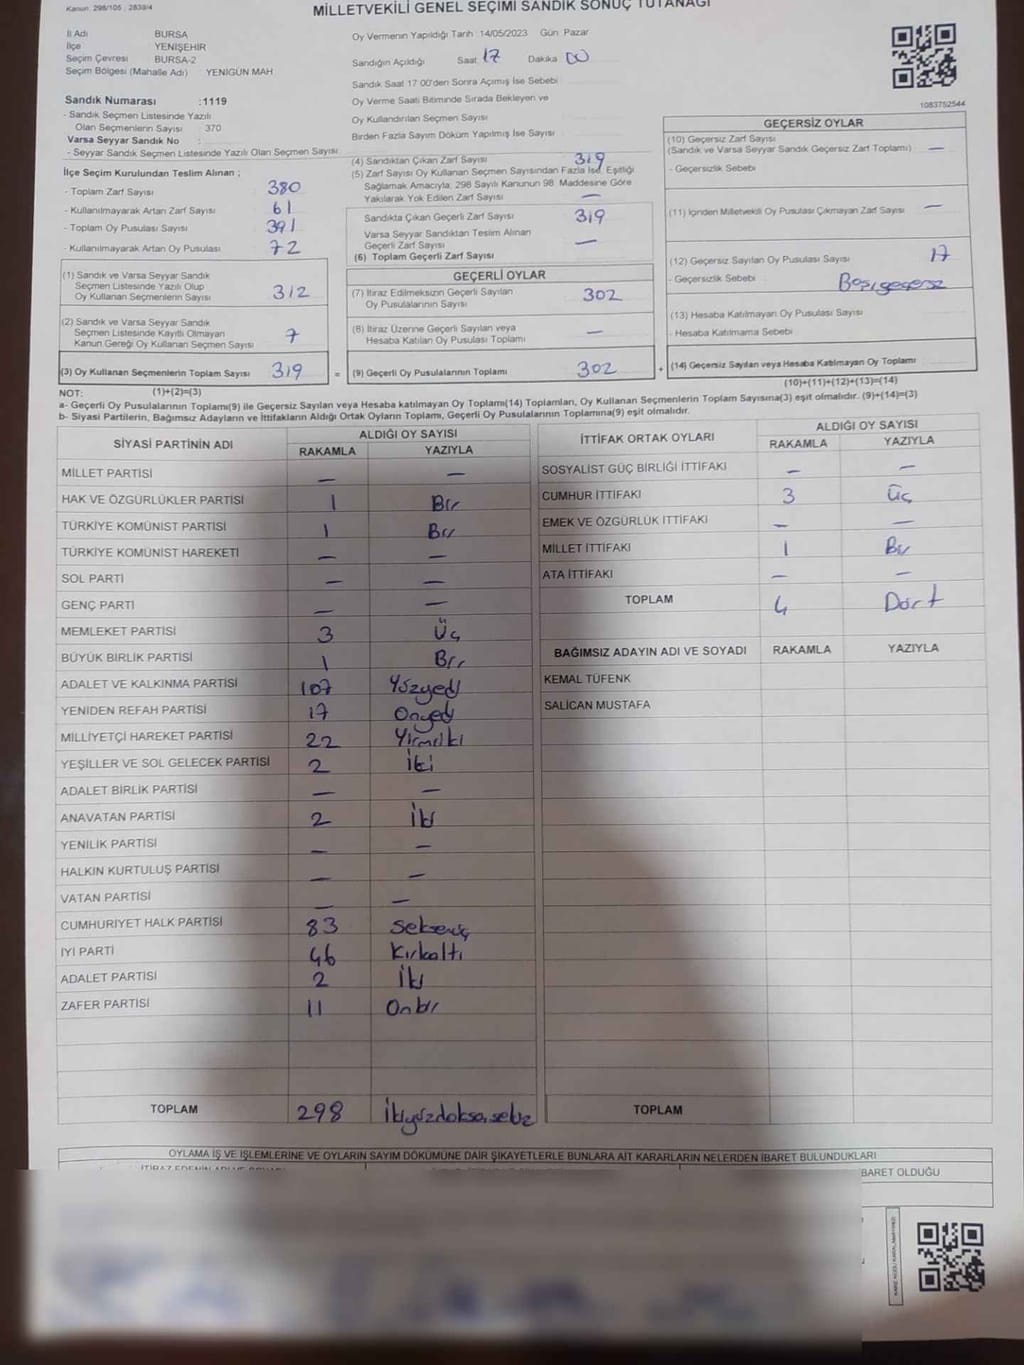 Kanun: 298/105 ; 2839/4
MİLLETVEKİLİ GENEL SEÇİMİ SANDIK SONUÇ TUTANAĞI
İl Adı BURSA
İlçe YENİŞEHİR
Seçim Çevresi BURSA-2
Seçim Bölgesi (Mahalle Adı) YENİGÜN MAH
Sandık Numarası :1119
- Sandık Seçmen Listesinde Yazılı
Olan Seçmenlerin Sayısı 370
Varsa Seyyar Sandık No :
- Seyyar Sandık Seçmen Listesinde Yazılı Olan Seçmen Sayısı
İlçe Seçim Kurulundan Teslim Alınan ;
- Toplam Zarf Sayısı 380
- Kullanılmayarak Artan Zarf Sayısı 61
- Toplam Oy Pusulası Sayısı 391
- Kullanılmayarak Artan Oy Pusulası 72
(1) Sandık ve Varsa Seyyar Sandık
Seçmen Listesinde Yazılı Olup
Oy Kullanan Seçmenlerin Sayısı 312
(2) Sandık ve Varsa Seyyar Sandık
Seçmen Listesinde Kayıtlı Olmayan
Kanun Gereği Oy Kullanan Seçmen Sayısı 7
(3) Oy Kullanan Seçmenlerin Toplam Sayısı 319 =
Oy Vermenin Yapıldığı Tarih 14/05/2023 Gün Pazar
Sandığın Açıldığı Saat 17 Dakika 00
Sandık Saat 17 00'den Sonra Açımış İse Sebebi
Oy Verme Saati Bitiminde Sırada Bekleyen ve
Oy Kullandırılan Seçmen Sayısı
Birden Fazla Sayım Döküm Yapılmış İse Sayısı
(4) Sandıktan Çıkan Zarf Sayısı 319
(5) Zarf Sayısı Oy Kullanan Seçmen Sayısından Fazla İse, Eşitliği
Sağlamak Amacıyla, 298 Sayılı Kanunun 98. Maddesine Göre
Yakılarak Yok Edilen Zarf Sayısı —
Sandıkta Çıkan Geçerli Zarf Sayısı 319
Varsa Seyyar Sandıktan Teslim Alınan
Geçerli Zarf Sayısı —
(6) Toplam Geçerli Zarf Sayısı
GEÇERLİ OYLAR
(7) İtiraz Edilmeksizin Geçerli Sayılan
Oy Pusulalarının Sayısı 302
(8) İtiraz Üzerine Geçerli Sayılan veya
Hesaba Katılan Oy Pusulası Toplamı —
(9) Geçerli Oy Pusulalarının Toplamı 302 +
1083752544
GEÇERSİZ OYLAR
(10) Geçersiz Zarf Sayısı
(Sandık ve Varsa Seyyar Sandık Geçersiz Zarf Toplamı) —
- Geçersizlik Sebebi
(11) İçinden Milletvekili Oy Pusulası Çıkmayan Zarf Sayısı —
(12) Geçersiz Sayılan Oy Pusulası Sayısı 17
- Geçersizlik Sebebi
(13) Hesaba Katılmayan Oy Pusulası Sayısı
- Hesaba Katılmama Sebebi
(14) Geçersiz Sayılan veya Hesaba Katılmayan Oy Toplamı
NOT: (1)+(2)=(3) (10)+(11)+(12)+(13)=(14)
a- Geçerli Oy Pusulalarının Toplamı(9) ile Geçersiz Sayılan veya Hesaba katılmayan Oy Toplamı(14) Toplamları, Oy Kullanan Seçmenlerin Toplam Sayısına(3) eşit olmalıdır. (9)+(14)=(3)
b- Siyasi Partilerin, Bağımsız Adayların ve İttifakların Aldığı Ortak Oyların Toplamı, Geçerli Oy Pusulalarının Toplamına(9) eşit olmalıdır.
SİYASİ PARTİNİN ADI ALDIĞI OY SAYISI
RAKAMLA YAZIYLA
MİLLET PARTİSİ — —
HAK VE ÖZGÜRLÜKLER PARTİSİ 1 Bir
TÜRKİYE KOMÜNİST PARTİSİ 1 Bir
TÜRKİYE KOMÜNİST HAREKETİ — —
SOL PARTİ — —
GENÇ PARTİ — —
MEMLEKET PARTİSİ 3 Üç
BÜYÜK BİRLİK PARTİSİ 1 Bir
ADALET VE KALKINMA PARTİSİ 107 Yüzyedi
YENİDEN REFAH PARTİSİ 17 Onyedi
MİLLİYETÇİ HAREKET PARTİSİ 22 Yirmiiki
YEŞİLLER VE SOL GELECEK PARTİSİ 2 İki
ADALET BİRLİK PARTİSİ — —
ANAVATAN PARTİSİ 2 İki
YENİLİK PARTİSİ — —
HALKIN KURTULUŞ PARTİSİ — —
VATAN PARTİSİ — —
CUMHURİYET HALK PARTİSİ 83 Seksenüç
İYİ PARTİ 46 Kırkaltı
ADALET PARTİSİ 2 İki
ZAFER PARTİSİ 11 Onbir
TOPLAM 298 İkiyüzdoksansekiz
İTTİFAK ORTAK OYLARI ALDIĞI OY SAYISI
RAKAMLA YAZIYLA
SOSYALİST GÜÇ BİRLİĞİ İTTİFAKI — —
CUMHUR İTTİFAKI 3 Üç
EMEK VE ÖZGÜRLÜK İTTİFAKI — —
MİLLET İTTİFAKI 1 Bir
ATA İTTİFAKI — —
TOPLAM 4 Dört
BAĞIMSIZ ADAYIN ADI VE SOYADI RAKAMLA YAZIYLA
KEMAL TÜFENK
SALİCAN MUSTAFA
TOPLAM
OYLAMA İŞ VE İŞLEMLERİNE VE OYLARIN SAYIM DÖKÜMÜNE DAİR ŞİKAYETLERLE BUNLARA AİT KARARLARIN NELERDEN İBARET BULUNDUKLARI
BARET OLDUĞU